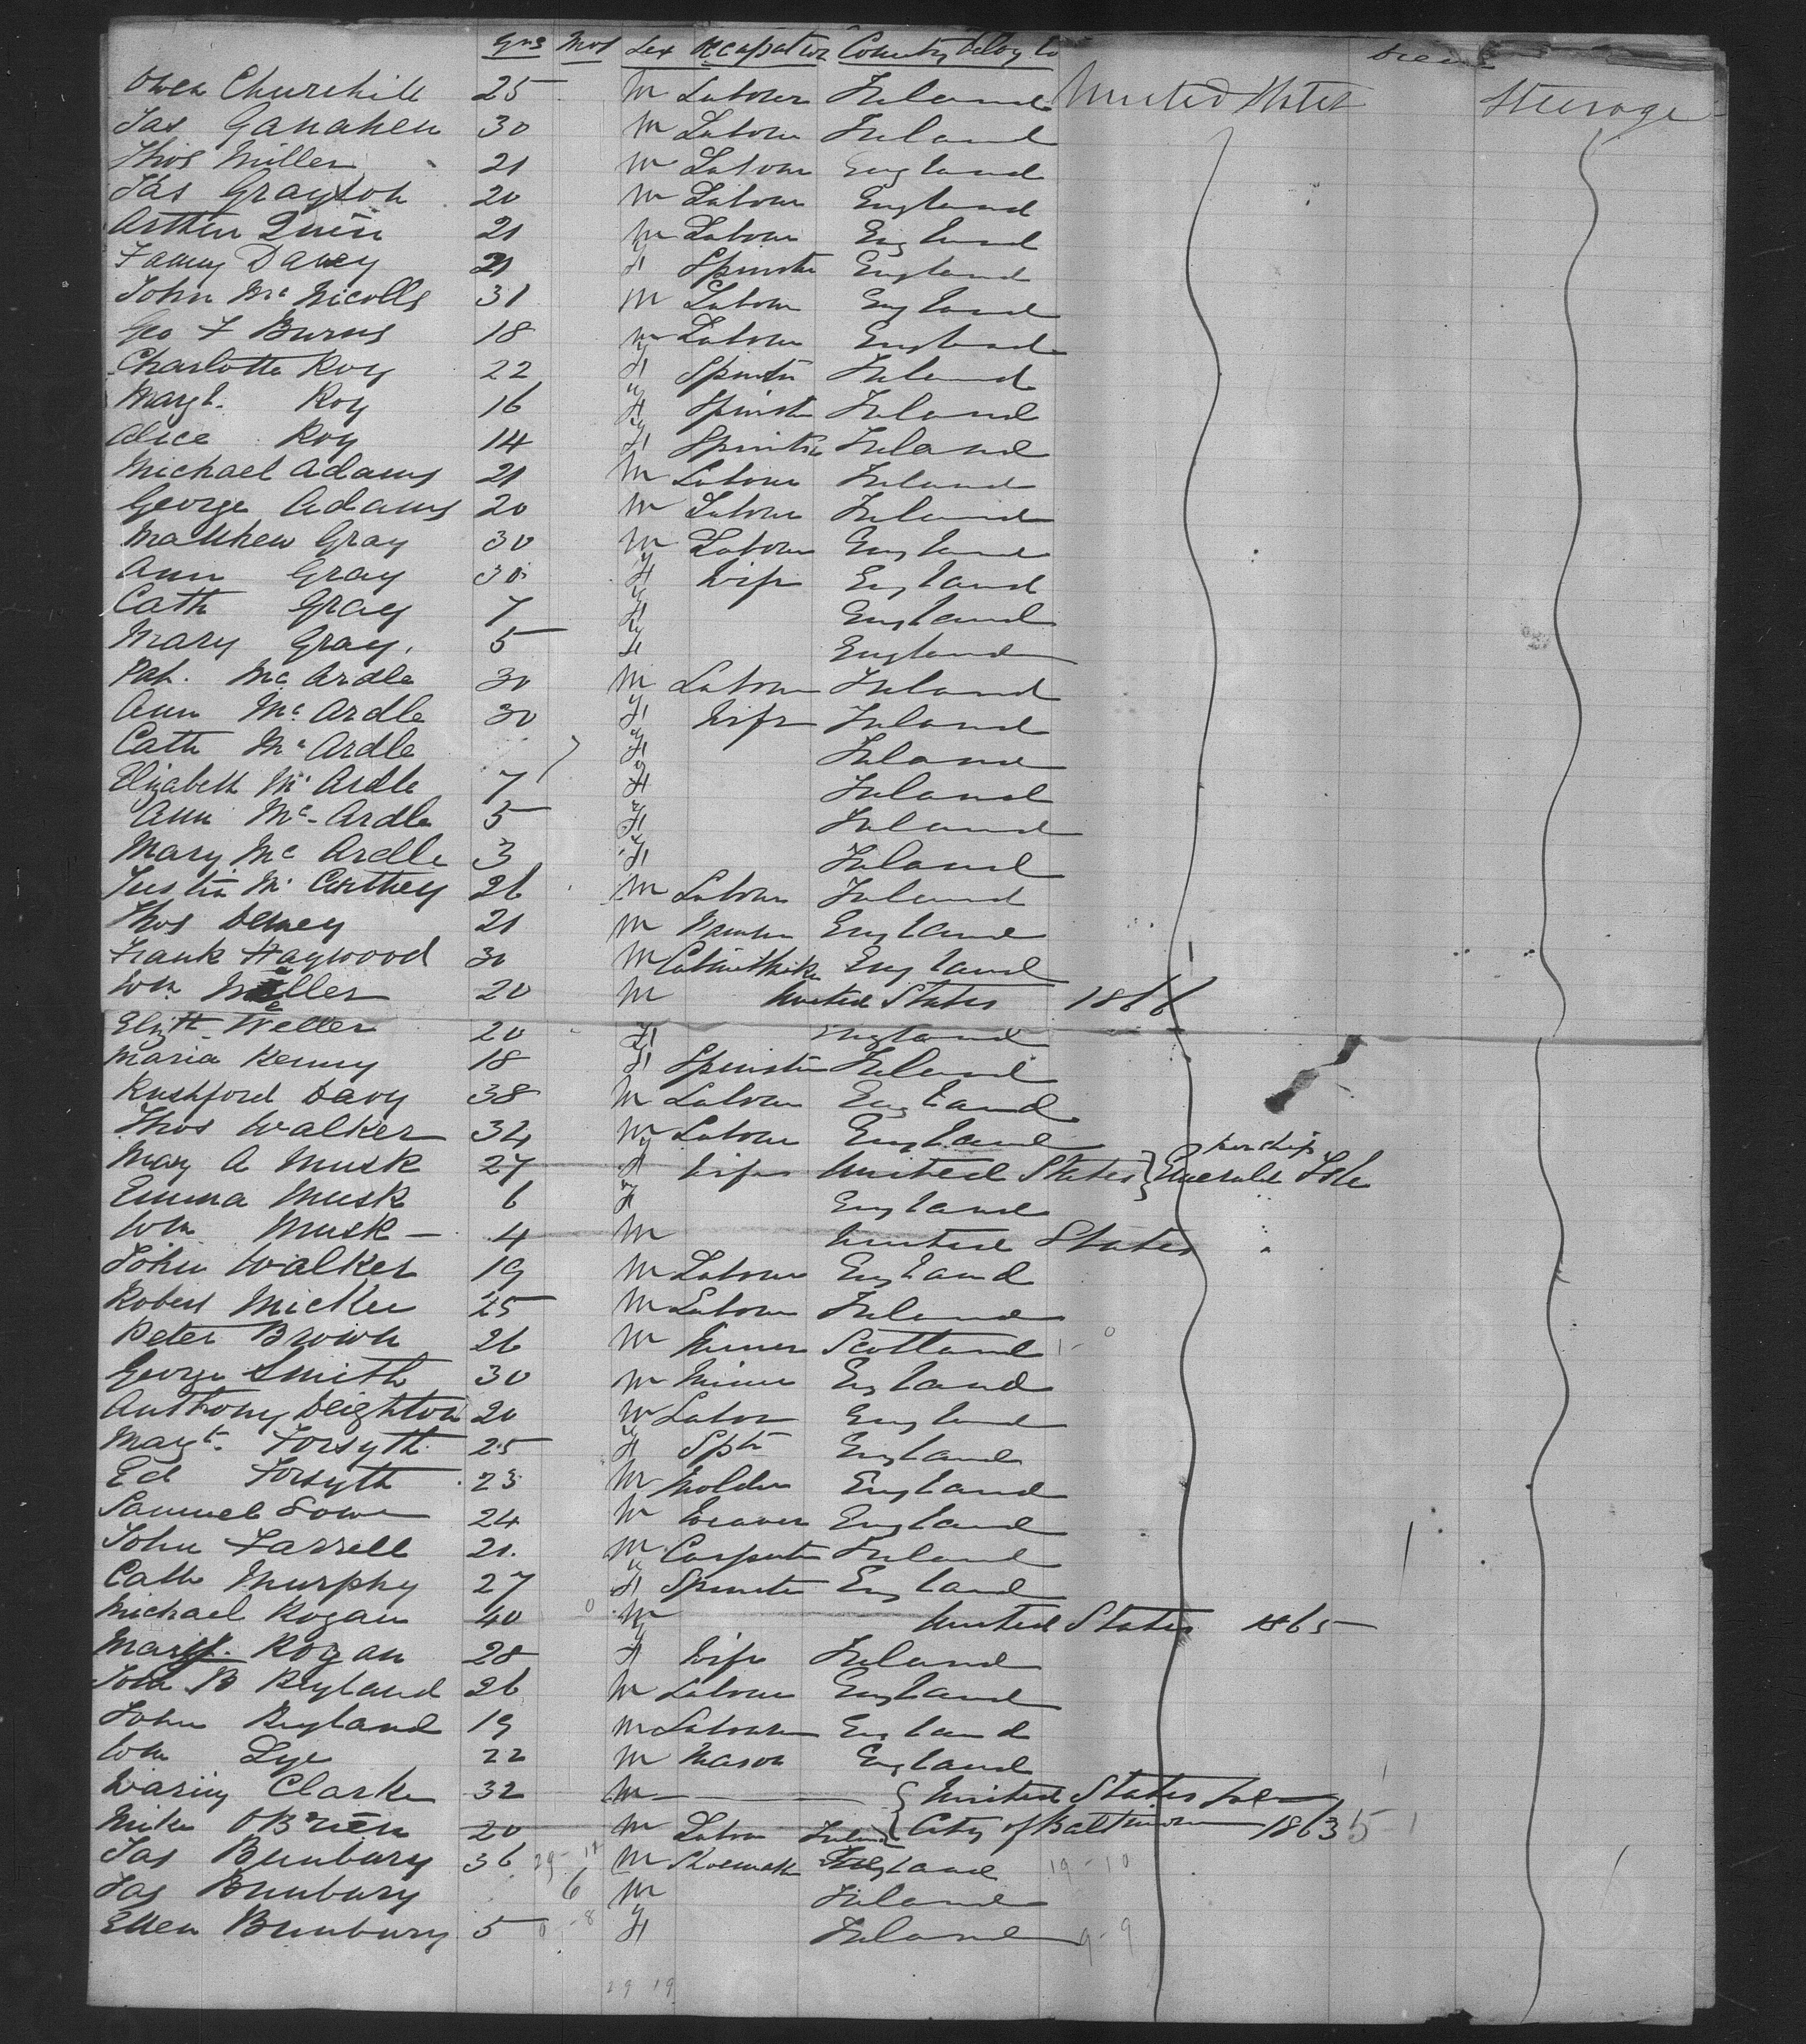 Yrs Mos Sex Occupation Country belong to
Owen Churchill 25 M Labourer Ireland United States Steerage
Jas Ganahen 30 M Labour Ireland
Thos Miller 21 M Labour England
Jas Grayson 20 M Labour England
Arthur Quin 21 M Labour England
Fanny Davey 21 F Spinster England
John McNicolls 31 M Labour England
Geo F Burns 18 M Labour England
Charlotte Roy 22 F Spinster Ireland
Margt. Roy 16 F Spinster Ireland
Alice Roy 14 F Spinster Ireland
Michael Adams 21 M Labour Ireland
George Adams 20 M Labour Ireland
Matthew Gray 30 M Labour England
Ann Gray 30 F Wife England
Cath Gray 7 F England
Mary Gray 5 F England
Pat. McArdle 30 M Labour Ireland
Ann McArdle 30 F Wife Ireland
Cath McArdle F Ireland
Elizabeth McArdle 7 F Ireland
Ann McArdle 5 F Ireland
Mary McArdle 3 F Ireland
Justin McCarthey 26 M Labour Ireland
Thos Demey 21 M England
Frank Haywood 30 M England
Wm Weller 20 M United States 1866
Elizth Weller 20 F England
Maria Kenny 18 F Spinster Ireland
Rushford Davy 38 M Labour England
Thos Walker 34 M Labour England
Mary A Musk 27 F Wife United States } per ship Emerald Isle
Emma Musk 6 F England
Wm Musk 4 M United States
John Walker 19 M Labour England
Robert McKee 25 M Labour Ireland
Peter Brown 26 M Miner Scotland
George Smith 30 M Miner England
Anthony Deighton 20 M Labor England
Margt. Forsyth 25 F Sptr England
Ed Forsyth 23 M Molder England
Samuel Sowe 24 M Weaver England
John Farrell 21 M Carpenter Ireland
Cath Murphy 27 F Spinster England
Michael Rogan 40 M United States 1865
Margt. Rogan 28 F Wife Ireland
John B Ryland 26 M Labour England
John Ryland 19 M Labour England
Wm Lye 22 M Mason England
Waring Clarke 32 M { United States per
Mike O'Brien 20 M Labour Ireland { City of Baltimore 1863 5-1
Jas Bunbury 36 M Shoemaker England 19-10
Jas Bunbury 6 M Ireland
Ellen Bunbury 5 0-8 F Ireland 9-9
29 19